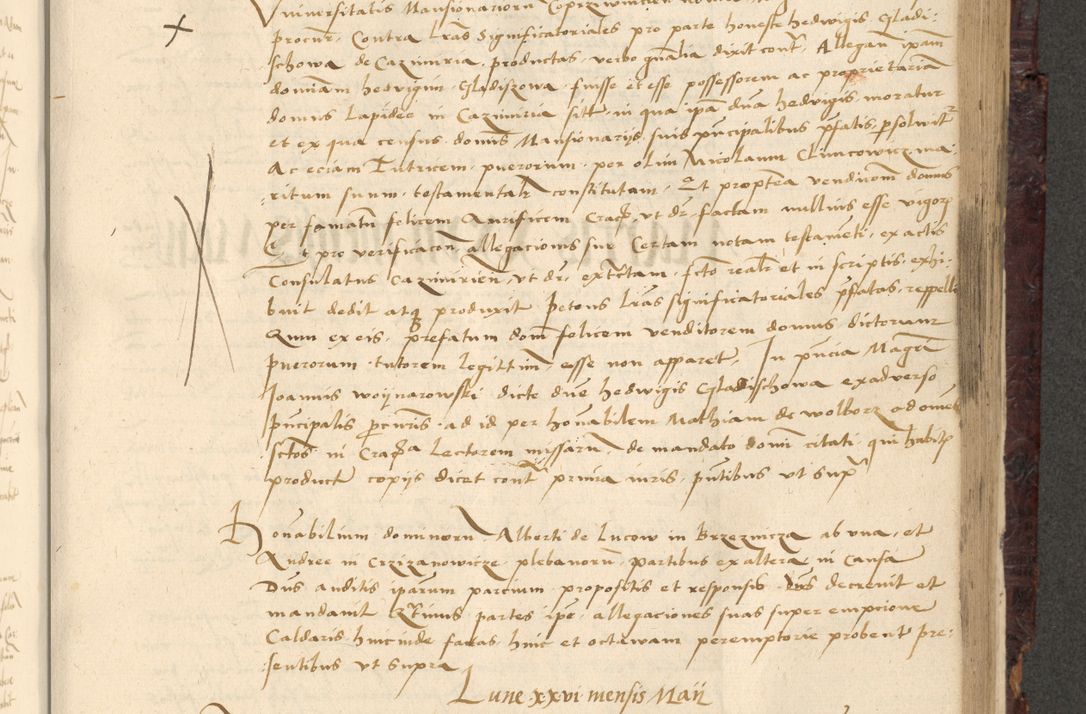 Universitatis Mansionariorum Coprziwnicien
procur. Contra lras Significatoriales pro parte honeste hedwigis Gladi:
schowa de Cazmiria, productas, verbo gnalia dixit cont. Allegan ipam
dominam hedvigim Gladiszowa fuisse et esse possessorem ac proprietariã
domus lapidee in Cazmiria sitte, in qua ipa dna hedvigis moratur
et ex qua census dominis Mansionarijs suis pncipalibus pfatis psolvitr
Ac eciam Tutricem puerorum per olim Nicolaum Climcowicz ma:
:ritum suum testamentalr constitutam. Et propterea vendicom domus
per famatu felicem Aurificem Crac, ut dr, factam nullius esse vigorz
Et pro verificacon allegacionis sue Certam notam testameti, ex actis
Consulatus Cazmirien, ut dr, extctam, fcto realr et in scriptis exhi:
buit dedit atq produxit. Petens lras significatoriales pfatas, reppelli
Quum ex eis, prefatum dom felicem venditorem domus dictorum
puerorum tutorem legittim, esse non apparet. In pncia Magri
Joannis woijnarowski dicte dne hedwigis Gladisschowa ex adverso
pncipalis pcuris, ad id per honabilem Mathiam de wolborz ad omes
actos in Craca Lectorem missaru, de mandato domi citati, qui habitis
producte copijs dicet cont primia iuris, pntibus ut supr
Honabilium dominorum Alberti de Lucow in Brzeznicza ab una, et
Andree in Crzizanowicze plebanoru, partibus ex altera in Causa
Dns auditis iparum parcium propositis et responsis decrevit et
mandavit Quinus partes ipe allegaciones suas super empcione
Caldaris hincinde factas, hinc et octavam peremptorie probent pre:
:sentibus ut supra
Lune xxvi mensis Maij